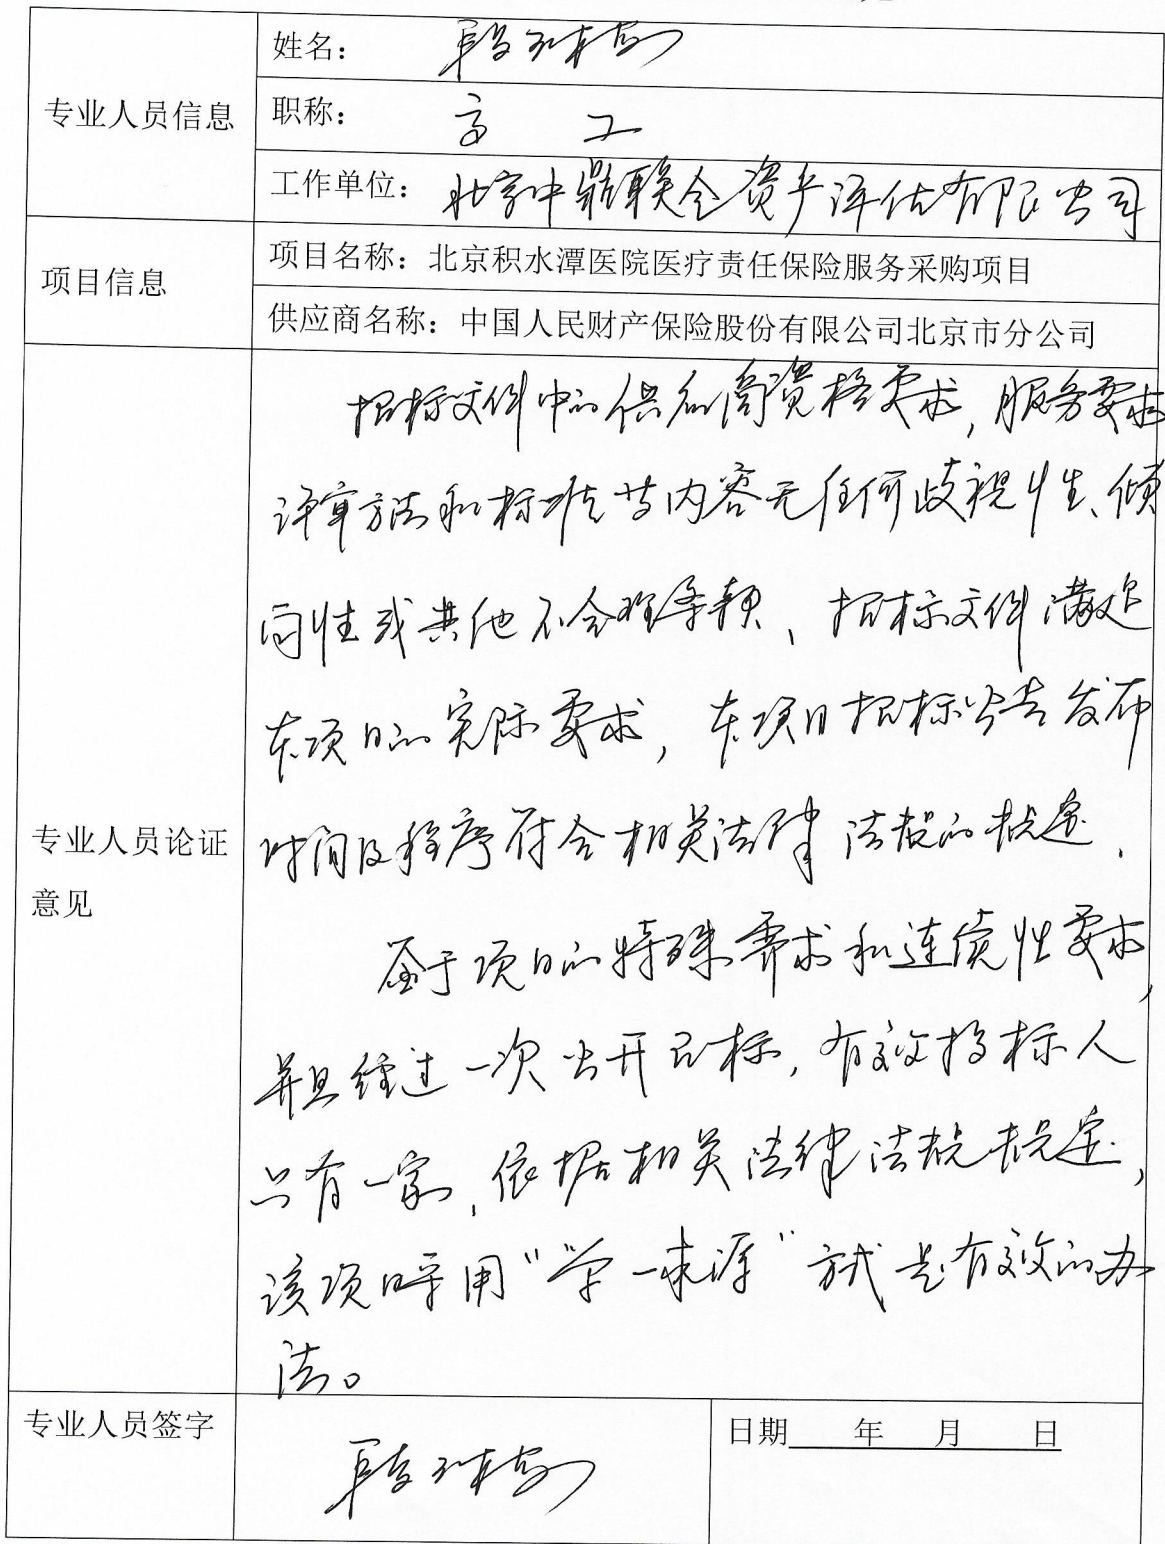 专业人员信息
姓名：
职称： 高 工
工作单位： 北京中鼎联合资产评估有限公司
项目信息
项目名称：北京积水潭医院医疗责任保险服务采购项目
供应商名称：中国人民财产保险股份有限公司北京市分公司
专业人员论证
意见
招标文件中的供应商资格要求，服务要求
评审方法和标准等内容无任何歧视性、倾
向性或其他不合理条款、招标文件满足
本项目的实际要求，本项目招标公告发布
时间及程序符合相关法律 法规的规定．
鉴于项目的特殊需求和连续性要求，
并且经过一次公开招标，有效投标人
只有一家，依据相关法律法规规定，
该项目采用“单一来源”方式是有效的办
法。
专业人员签字
日期 年 月 日